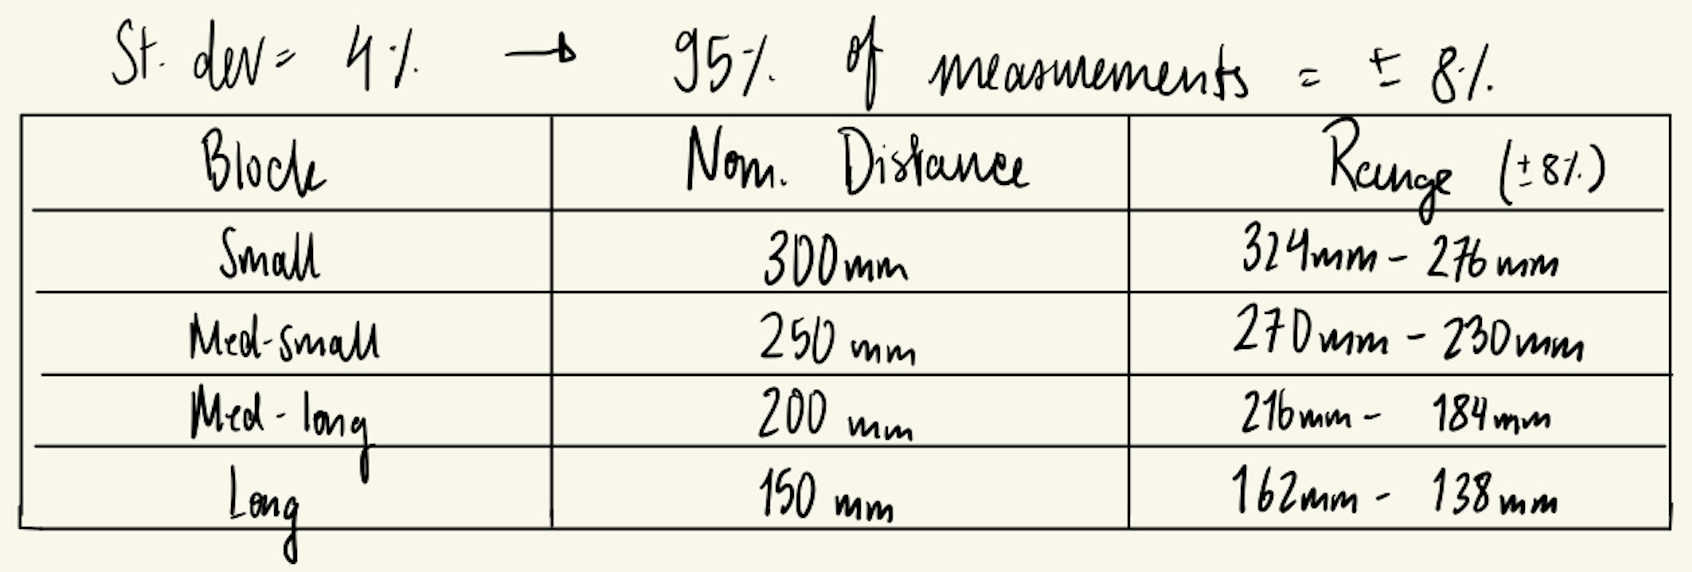 St. dev = 4% → 95% of measurements = ± 8%
Block Nom. Distance Range (±8%)
Small 300mm 324mm - 276mm
Med-small 250 mm 270mm - 230mm
Med-long 200 mm 216mm - 184mm
Long 150 mm 162mm - 138mm